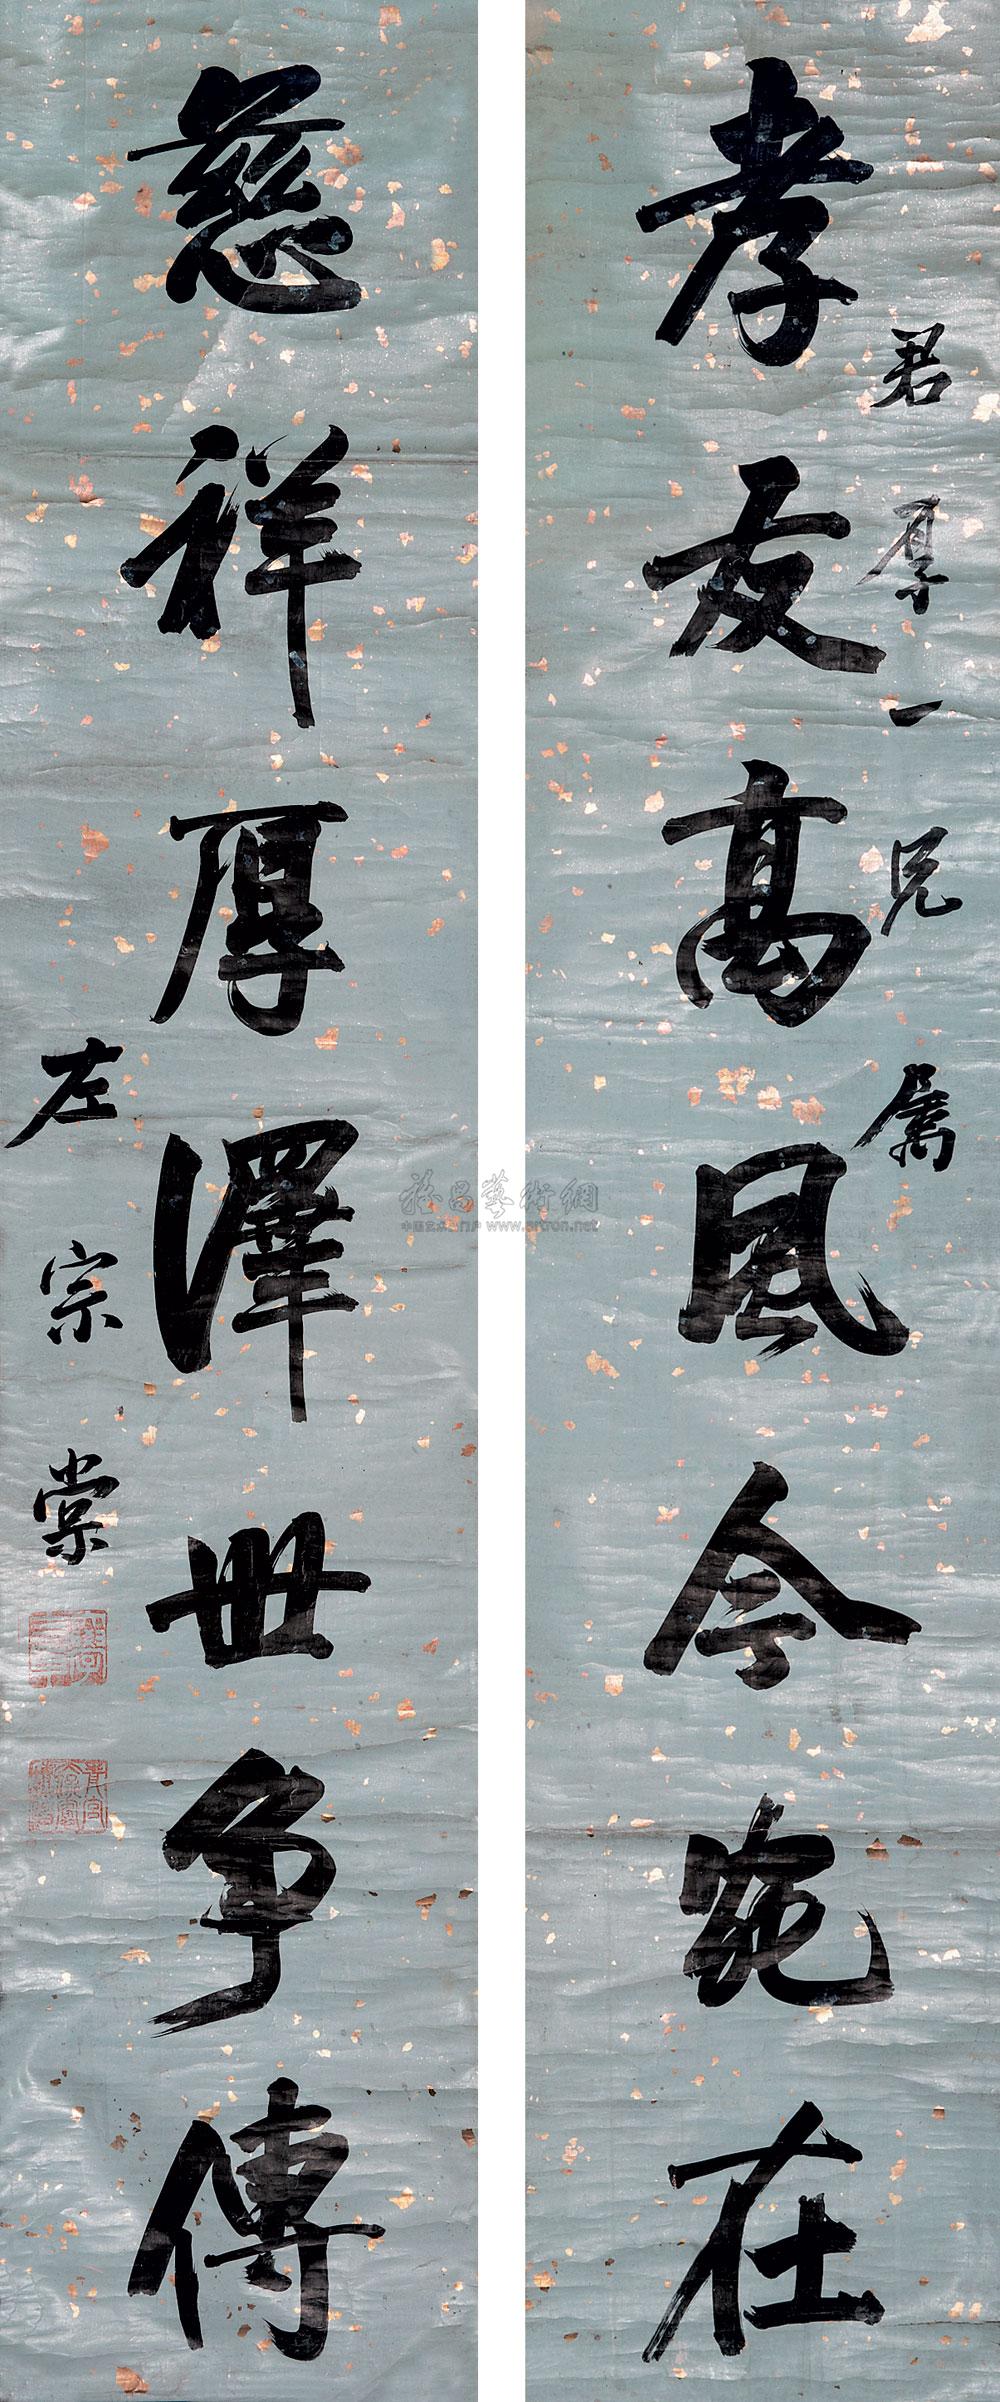 孝友高風今宛在
君厚一兄屬
慈祥厚澤世爭傳
左宗棠
雅昌藝術網
中国艺术品门户 www.artron.net